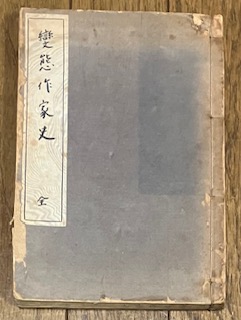 變態作家史
全